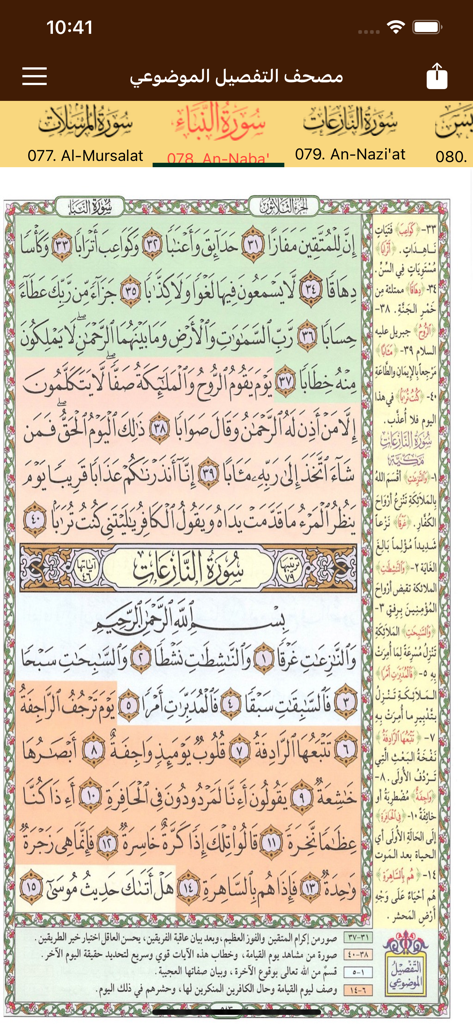 10:41
مصحف التفصيل الموضوعي
سورة المرسلات
سورة النبإ
سورة النازعات
077. Al-Mursalat
078. An-Naba'
079. An-Nazi'at
080.
الجزء الثلاثون
سورة النبإ
إِنَّ لِلْمُتَّقِينَ مَفَازًا ﴿٣١﴾ حَدَآئِقَ وَأَعْنَٰبًا ﴿٣٢﴾ وَكَوَاعِبَ أَتْرَابًا ﴿٣٣﴾ وَكَأْسًا
دِهَاقًا ﴿٣٤﴾ لَّا يَسْمَعُونَ فِيهَا لَغْوًا وَلَا كِذَّٰبًا ﴿٣٥﴾ جَزَآءً مِّن رَّبِّكَ عَطَآءً
حِسَابًا ﴿٣٦﴾ رَّبِّ ٱلسَّمَٰوَٰتِ وَٱلْأَرْضِ وَمَا بَيْنَهُمَا ٱلرَّحْمَٰنِ ۖ لَا يَمْلِكُونَ
مِنْهُ خِطَابًا ﴿٣٧﴾ يَوْمَ يَقُومُ ٱلرُّوحُ وَٱلْمَلَٰٓئِكَةُ صَفًّا ۖ لَّا يَتَكَلَّمُونَ
إِلَّا مَنْ أَذِنَ لَهُ ٱلرَّحْمَٰنُ وَقَالَ صَوَابًا ﴿٣٨﴾ ذَٰلِكَ ٱلْيَوْمُ ٱلْحَقُّ ۖ فَمَن
شَآءَ ٱتَّخَذَ إِلَىٰ رَبِّهِۦ مَـَٔابًا ﴿٣٩﴾ إِنَّآ أَنذَرْنَٰكُمْ عَذَابًا قَرِيبًا يَوْمَ
يَنظُرُ ٱلْمَرْءُ مَا قَدَّمَتْ يَدَاهُ وَيَقُولُ ٱلْكَافِرُ يَٰلَيْتَنِى كُنتُ تُرَٰبًۢا ﴿٤٠﴾
ترتيبها ٧٩
سورة النازعات
آياتها ٤٦
بِسْمِ ٱللَّهِ ٱلرَّحْمَٰنِ ٱلرَّحِيمِ
وَٱلنَّٰزِعَٰتِ غَرْقًا ﴿١﴾ وَٱلنَّٰشِطَٰتِ نَشْطًا ﴿٢﴾ وَٱلسَّٰبِحَٰتِ سَبْحًا
﴿٣﴾ فَٱلسَّٰبِقَٰتِ سَبْقًا ﴿٤﴾ فَٱلْمُدَبِّرَٰتِ أَمْرًا ﴿٥﴾ يَوْمَ تَرْجُفُ ٱلرَّاجِفَةُ
﴿٦﴾ تَتْبَعُهَا ٱلرَّادِفَةُ ﴿٧﴾ قُلُوبٌ يَوْمَئِذٍ وَاجِفَةٌ ﴿٨﴾ أَبْصَٰرُهَا
خَٰشِعَةٌ ﴿٩﴾ يَقُولُونَ أَءِنَّا لَمَرْدُودُونَ فِى ٱلْحَافِرَةِ ﴿١٠﴾ أَءِذَا كُنَّا
عِظَٰمًا نَّخِرَةً ﴿١١﴾ قَالُوا۟ تِلْكَ إِذًا كَرَّةٌ خَاسِرَةٌ ﴿١٢﴾ فَإِنَّمَا هِىَ زَجْرَةٌ
وَٰحِدَةٌ ﴿١٣﴾ فَإِذَا هُم بِٱلسَّاهِرَةِ ﴿١٤﴾ هَلْ أَتَىٰكَ حَدِيثُ مُوسَىٰٓ ﴿١٥﴾
٣٣- ﴿كواعب﴾ فتيات
ناهدات. ﴿أترابا﴾
مستويات في السن.
٣٤- ﴿دهاقا﴾ ممتلئة من
خمر الجنة. ٣٨-
﴿الروح﴾ جبريل عليه
السلام ٣٩- ﴿مآبا﴾
مرجعا بالإيمان والطاعة
٤٠- ﴿كنت ترابا﴾ في هذا
اليوم فلا أعذب.
سورة النازعات
مكية
١- ﴿والنازعات﴾ أقسم الله
بالملائكة تنزع أرواح
الكفار. ﴿غرقا﴾ نزعا
شديدا مؤلما بالغ
الغاية ٢- ﴿والناشطات﴾
الملائكة تقبض أرواح
المؤمنين برفق ٣-
﴿والسابحات﴾ الملائكة
تنزل مسرعة لما أمرت
به ٥- ﴿فالمدبرات أمرا﴾
الملائكة تنزل
بتدبير ما أمرت به
٧- ﴿تتبعها الرادفة﴾
نفخة البعث التي
تردف الأولى. ٨-
﴿واجفة﴾ مضطربة أو
خائفة ١٠- ﴿في الحافرة﴾
إلى الحالة الأولى أي
الحياة بعد الموت
١٤- ﴿هم بالساهرة﴾
هم أحياء على وجه
أرض المحشر.
التفصيل الموضوعي
٣١-٣٧ صور من إكرام المتقين والفوز العظيم، وبعد بيان عاقبة الفريقين، يحسن العاقل اختيار خير الطريقين.
٣٨-٤٠ صورة من مشاهد يوم القيامة، وخطاب هذه الآيات قوي وسريع لتحديد حقيقة اليوم الآخر.
١-٥ قسم من الله تعالى بوقوع الآخرة، وبيان صفاتها العجيبة.
٦-١٤ وصف ليوم القيامة وحال الكافرين المنكرين لها، وحشرهم في ذلك اليوم.